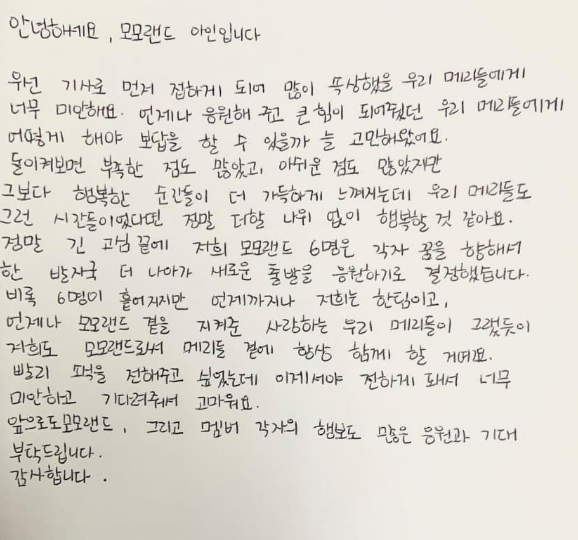 안녕하세요, 모모랜드 아인입니다
우선 기사로 먼저 접하게 되어 많이 속상했을 우리 메리들에게
너무 미안해요. 언제나 응원해 주고 큰 힘이 되어줬던 우리 메리들에게
어떻게 해야 보답을 할 수 있을까 늘 고민해왔어요.
돌이켜보면 부족한 점도 많았고, 아쉬운 점도 많았지만
그보다 행복한 순간들이 더 가득하게 느껴지는데 우리 메리들도
그런 시간들이었다면 정말 더할 나위 없이 행복할 것 같아요.
정말 긴 고심 끝에 저희 모모랜드 6명은 각자 꿈을 향해서
한 발자국 더 나아가 새로운 출발을 응원하기로 결정했습니다.
비록 6명이 흩어지지만 언제까지나 저희는 한팀이고,
언제나 모모랜드 곁을 지켜준 사랑하는 우리 메리들이 그랬듯이
저희도 모모랜드로서 메리들 곁에 항상 함께 할 거예요.
빨리 소식을 전해주고 싶었는데 이제서야 전하게 돼서 너무
미안하고 기다려줘서 고마워요.
앞으로도 모모랜드, 그리고 멤버 각자의 행보도 많은 응원과 기대
부탁드립니다.
감사합니다.